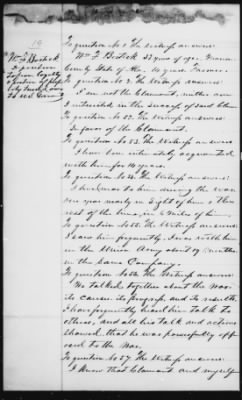 16
Wm F. Bostick
Deposition
To question No. 1. The Witness answers:
Wm F. Bostick 33 years of age. Brown
County State of Ohio. Is a Farmer.
To question No. 2. The Witness answers:
I am not the Claimant, neither am
I interested in the success of said Claim
To question No. 52. The Witness answers:
In favor of the Claimant.
To question No. 53. The Witness answers:
I have been intimately acquainted
with him for 14 years.
To question No. 54. The Witness answers:
I lived near to him during the war
one year nearly in sight of him & the
rest of the time, in 6 miles of him.
To question No. 55. The Witness answers:
I saw him frequently, I was with him
in the Union Army about 12 months
in the same Company.
To question No. 56. The Witness answers:
We talked together about the war.
its causes its progress, and its results,
I have frequently heard him talk to
others, and all his talk and actions
showed that he was powerfully opp
osed to the War.
To question No. 57. The Witness answers:
I know that Claimant and myself